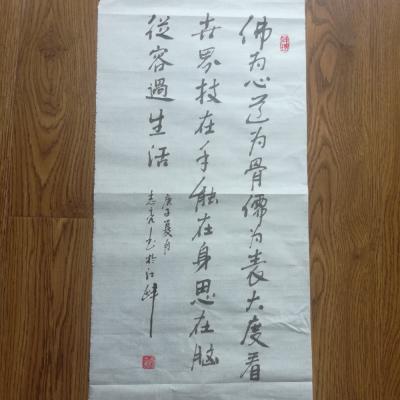 佛为心道为骨儒为表大度看
世界技在手能在身思在脑
從容過生活
庚子夏月
志亮书於江